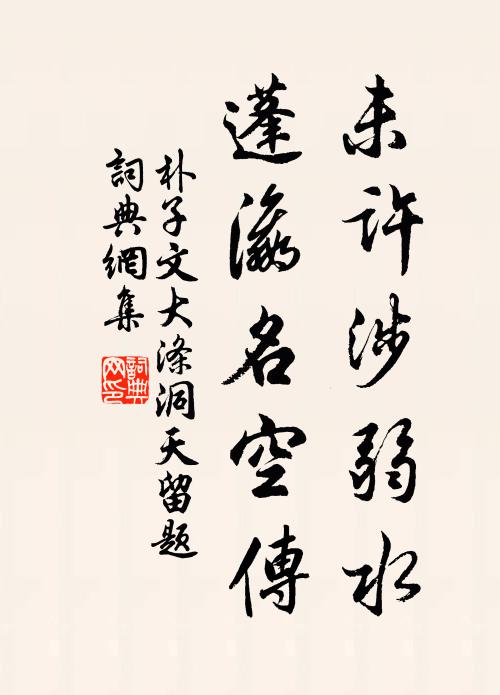 未許涉弱水
蓬瀛名空傳
朴子文大滌洞天留題
詞典網集
詞典网印